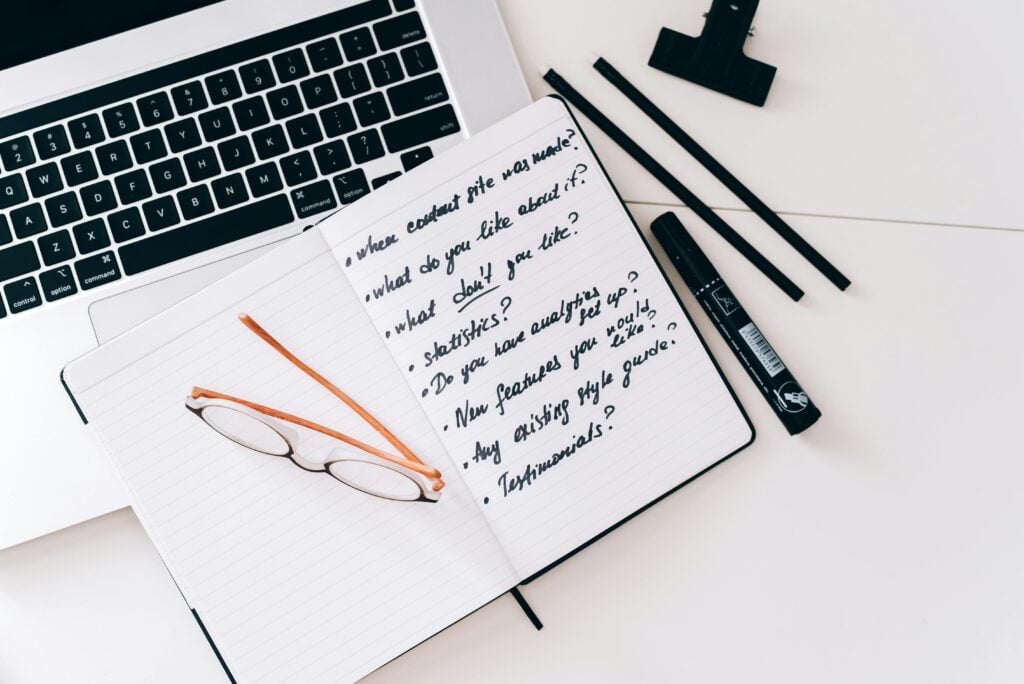 delete
2 3 4 5 6 7 8 9 0
Q W E R T Y U I O P
return
A S D F G H J K L
shift
X C V B N M
command option
control option command
• when site was made?
• what do you like about it?
• what don't you like?
• statistics?
• Do you have analytics
set up?
• New features you would
like?
• Any existing style guide?
• Testimonials?